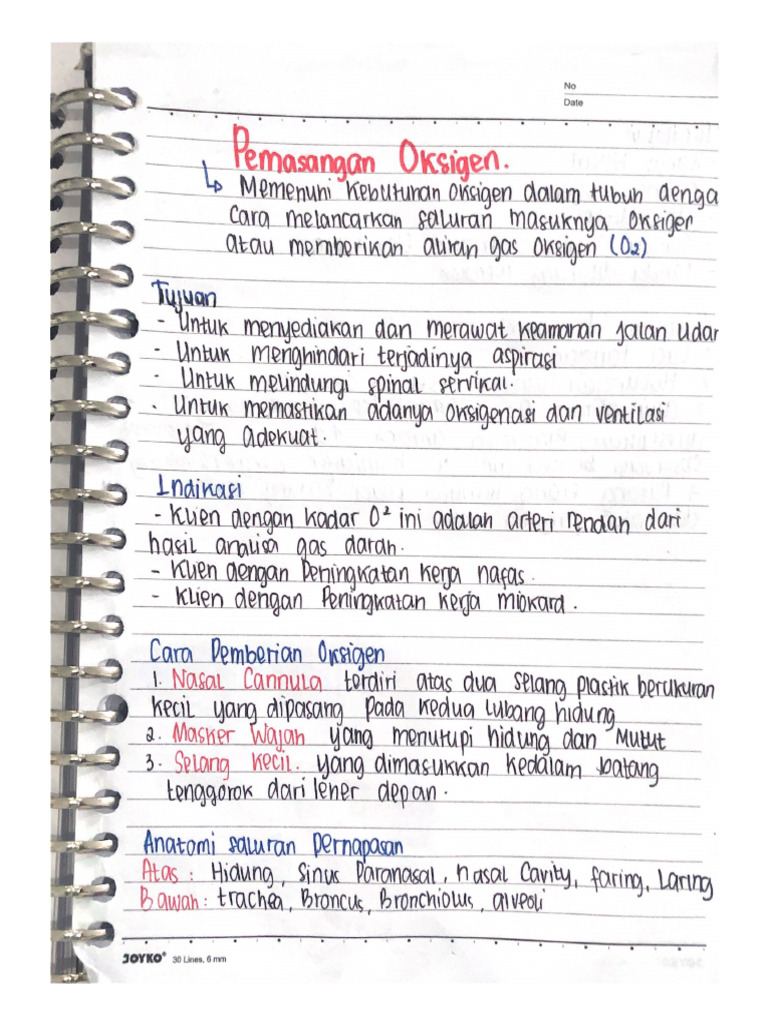 No
Date
Pemasangan Oksigen.
↳ Memenuhi kebutuhan oksigen dalam tubuh denga
cara melancarkan saluran masuknya oksiger
atau memberikan aliran gas oksigen (O2)
Tujuan
- Untuk menyediakan dan merawat keamanan jalan Udar
- Untuk menghindari terjadinya aspirasi
- Untuk melindungi spinal servikal.
- Untuk memastikan adanya oksigenasi dan ventilasi
yang adekuat.
Indikasi
- Klien dengan kadar O² ini adalah arteri rendah dari
hasil analisa gas darah.
- Klien dengan Peningkatan kerja nafas.
- Klien dengan Peningkatan kerja miokard.
Cara Pemberian Oksigen
1. Nasal Cannula terdiri atas dua selang plastik berukuran
kecil yang dipasang pada kedua lubang hidung
2. Masker Wajah yang menutupi hidung dan Mulut
3. Selang Kecil. yang dimasukkan kedalam batang
tenggorok dari leher depan.
Anatomi saluran Pernapasan
Atas : Hidung, Sinus Paranasal, nasal Cavity, faring, Laring
Bawah : trachea, Broncus, Bronchiolus, alveoli
JOYKO® 30 Lines, 6 mm